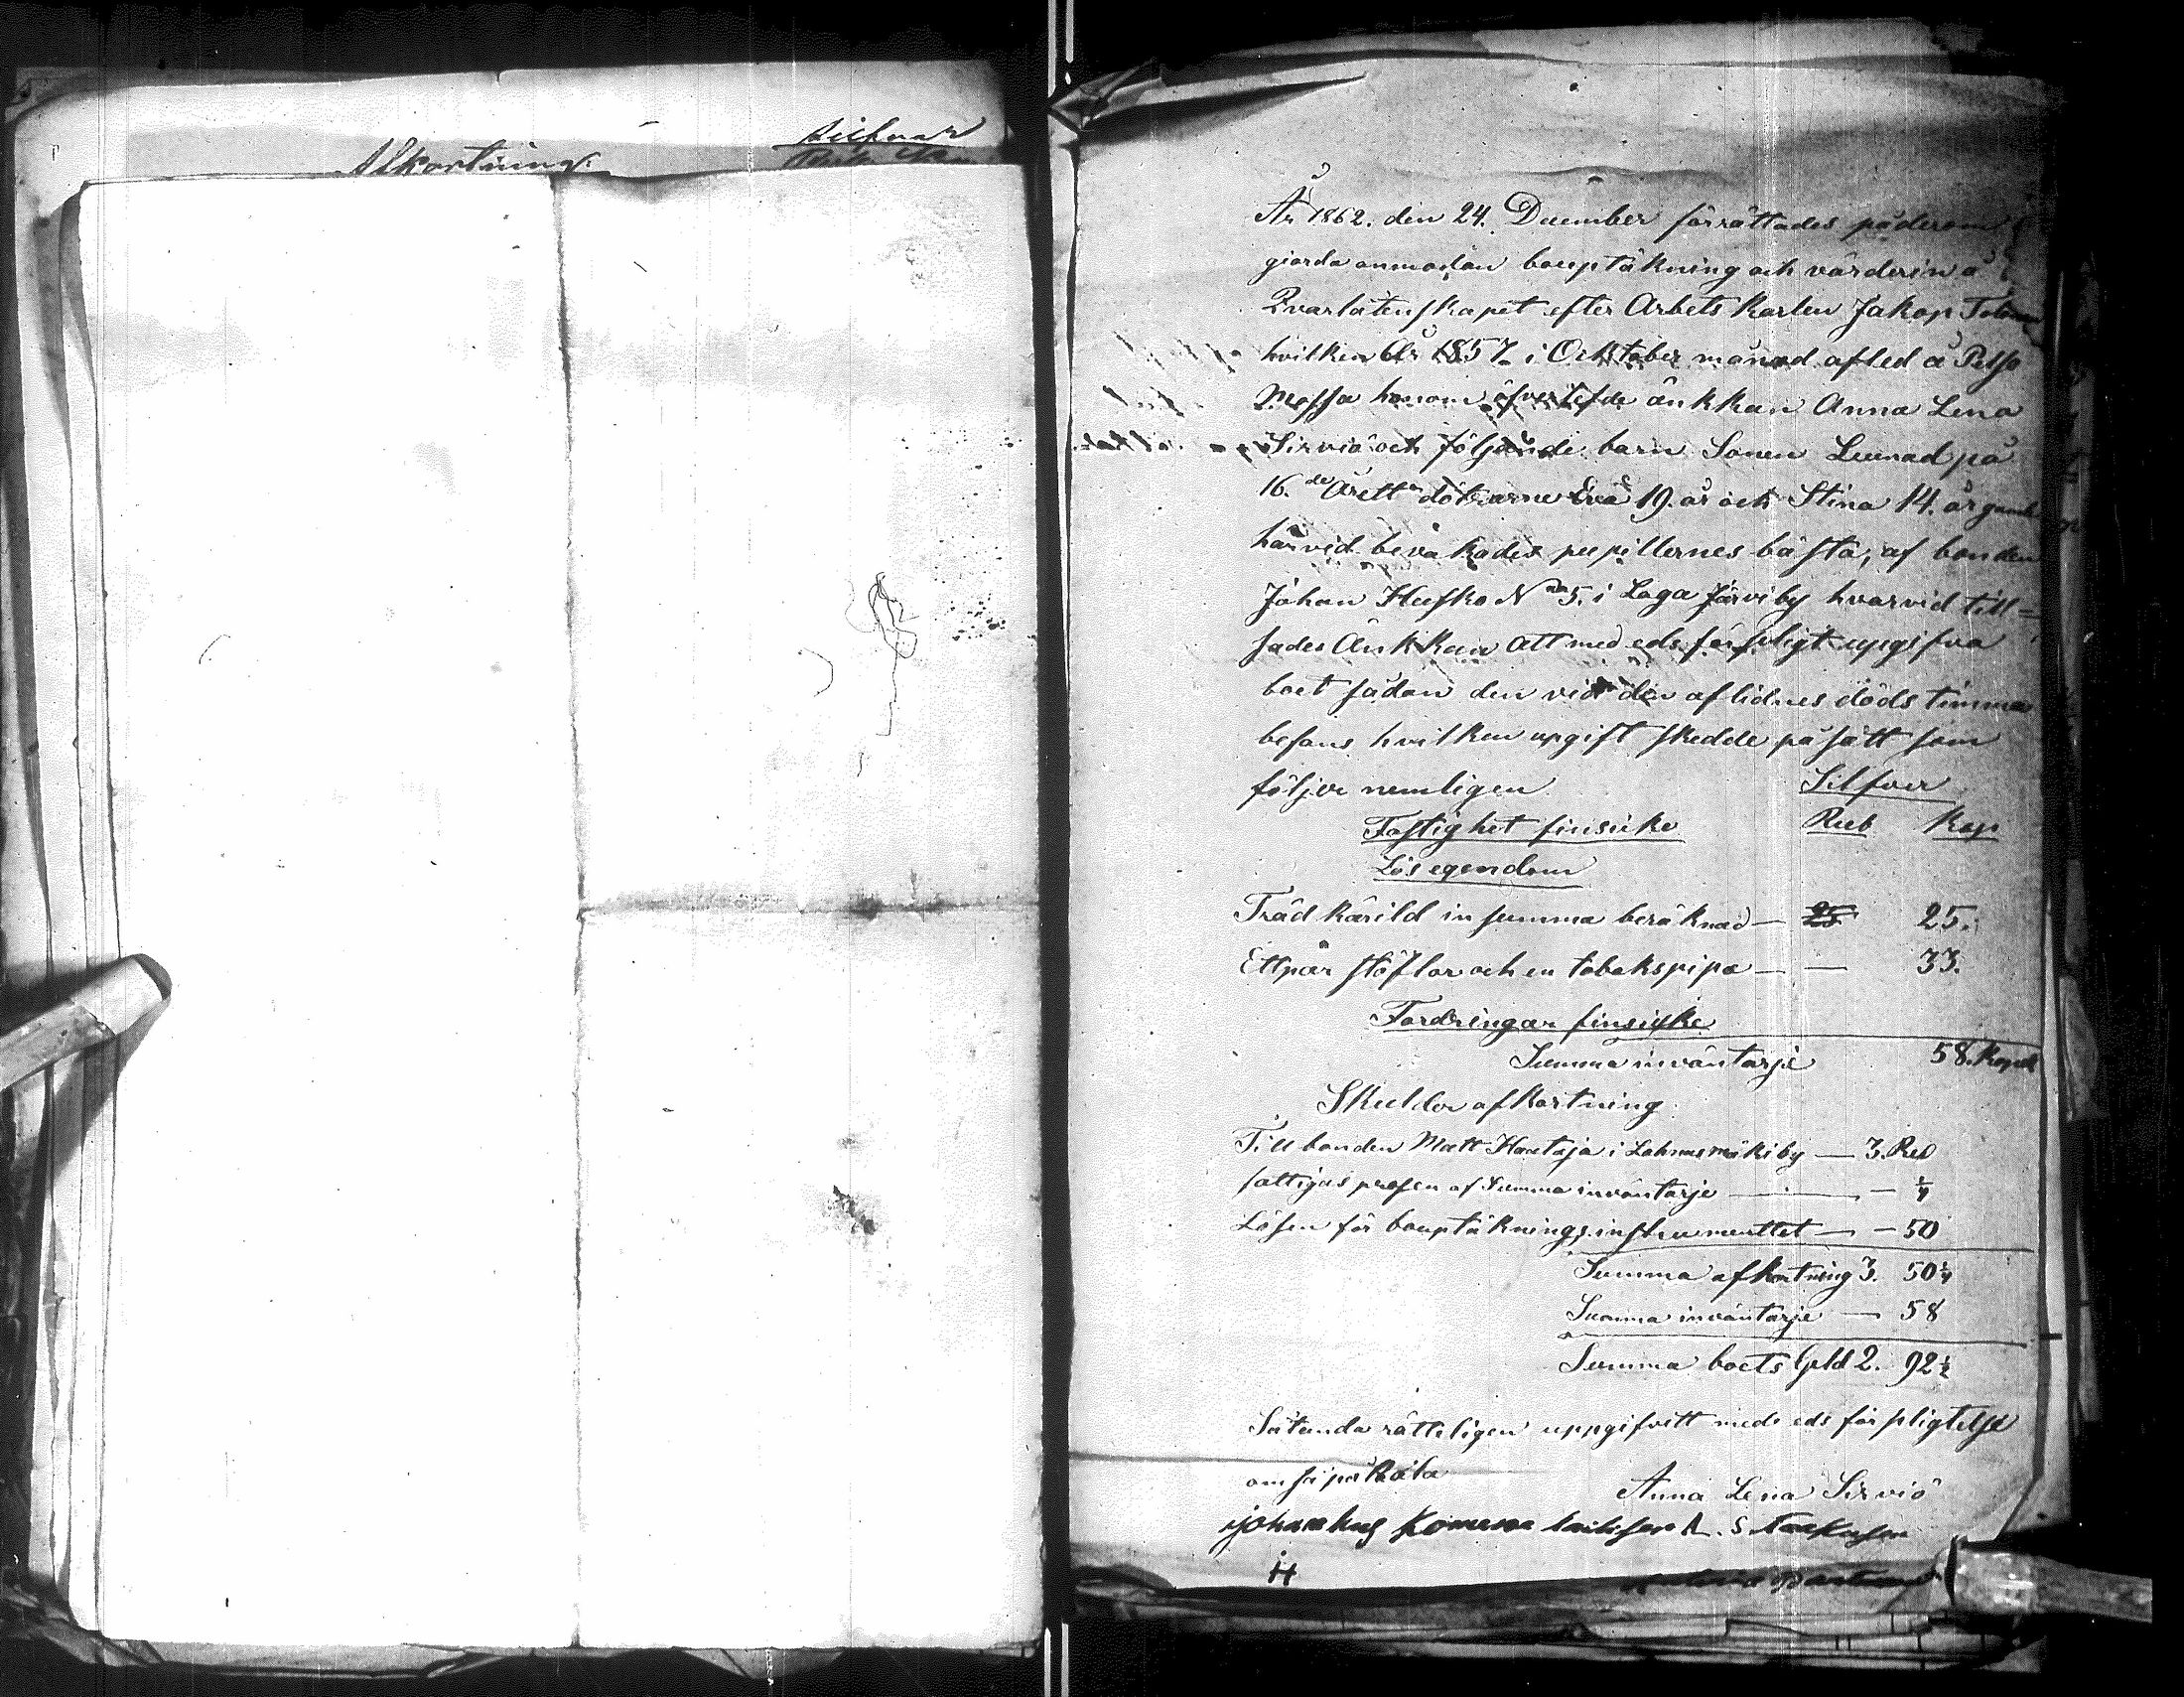 Afkortning
Silfver
År 1862. den 24. December förrättades på derom
giorda anmodan bouptäkning och värderin å
Qvarlåtenskapet efter Arbets Karlen Jakop
hvilken År 1857. i Ocktober månad afled å Pelso
Mossa honom öfverlefde änkkan Anna Lena
Sirviö och följande barn Sonen Leenad på
16.de Årett dötrarne Eva 19. år och Stina 14. år gamla
härvid bevakades pupillernes bästa, af bonden
Johan Husko No 5. i Laga Järvi by hvarvid till=
sades Änkkan att med eds förpligt uppgifva
boet sådan den vid den aflidnes döds timma
befans hvilken upgift skedde på sätt som
följer nemligen Silfver
Fastighet finsicke Rub Kop
Lös egendom
Träd kärild in summa beräknad — 25 25.
Ett par stöflor och en tobakspipa — — 33.
Fordringar finsicke
Summa inväntarje 58. Kopek
Skulder afkortning
Till bonden Matt Hautaja i Lahnasmäki by — 3. Rub
fattigas prosen af Summa inväntarje — — 1/4
Lösen för bouptäknings instrumenttet — — 50
Summa afkortning 3. 50 1/4
Summa inväntarje — 58
Summa boets Gäld 2. 92 1/4
Såtunda rätteligen uppgifvitt med eds förpligtelse
om så påkala
Anna Lena Sirviö